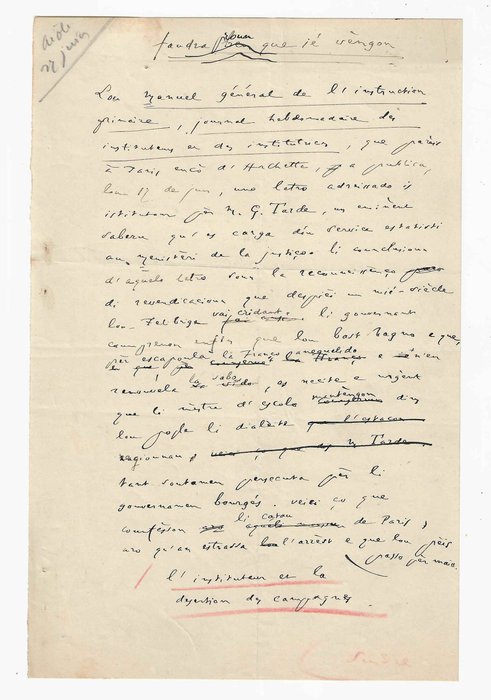 Aiòli
27 jun
faudra proun que ié vèngon
Lou Manuel général de l'instruction
primaire, journal hebdomadaire des
instituteurs et des institutrices, que parèis
à Paris encò d'Hachette, a publica,
lou 17 de jun, uno letro adreissado is
istitutour pèr M. G. Tarde, un eminènt
sabènt qu'es carga dóu service estatisti
au menistèri de la justiço: li conclusioun
d'aquelo letro soun la reconneissènço
di revendicacioun que despièi un mié-siècle
lou Felibrige vai cridant. li gouvernant
coumprenon enfin que lou bast bagno e que,
pèr escapoula la Franço anequelido e n'en
renouvela la sabo, es necite e urgènt
que li mèstre d'escolo mantèngon dins
lou pople li dialèite
regiounau
tant soutamen persecuta pèr li
gouvernamen bourgés. veici ço que
counfèsson li catau de Paris,
aro qu'an estrassa l'arrèst e que lou pèis
passo pèr maio.
l'instituteur et la
désertion des campagnes.